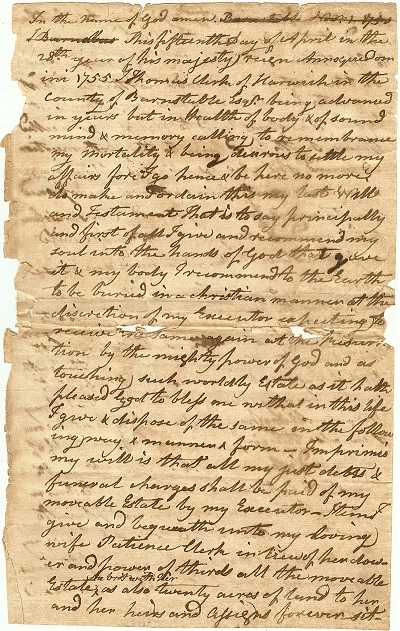 In the name of God amen. Barnstable
Barnabas This fifteenth Day of April in the
28th year of his majestys reign Annoque Dom
ini 1755 I Thomas Clerk of Harwich in the
County of Barnstable Esqr being advanced
in years but in Health of body & of sound
mind & memory calling to remembrance
my mortality & being desirous to settle my
affairs fore I go hence & be here no more
do make and ordain this my last Will
and Testament That is to say principally
and first of all I give and recommend my
soul into the hands of God that gave
it & my body I recommend to the Earth
to be buried in a christian manner at the
discretion of my Executor expecting to
receive the same again at the Resurrec
tion by the mighty power of God and as
touching such worldly Estate as it hath
pleased God to bless me with in this life
I give & dispose of the same in the follow
ing way & manner & form - Imprimis
my will is that all my just debts &
funeral charges shall be paid of my
moveable Estate by my Executor - Item I
give and bequeath unto my loving
wife Patience Clerk in lieu of her dow
er and power of thirds all the moveable
Estate, as also twenty acres of land to her
and her heirs and assigns forever sit